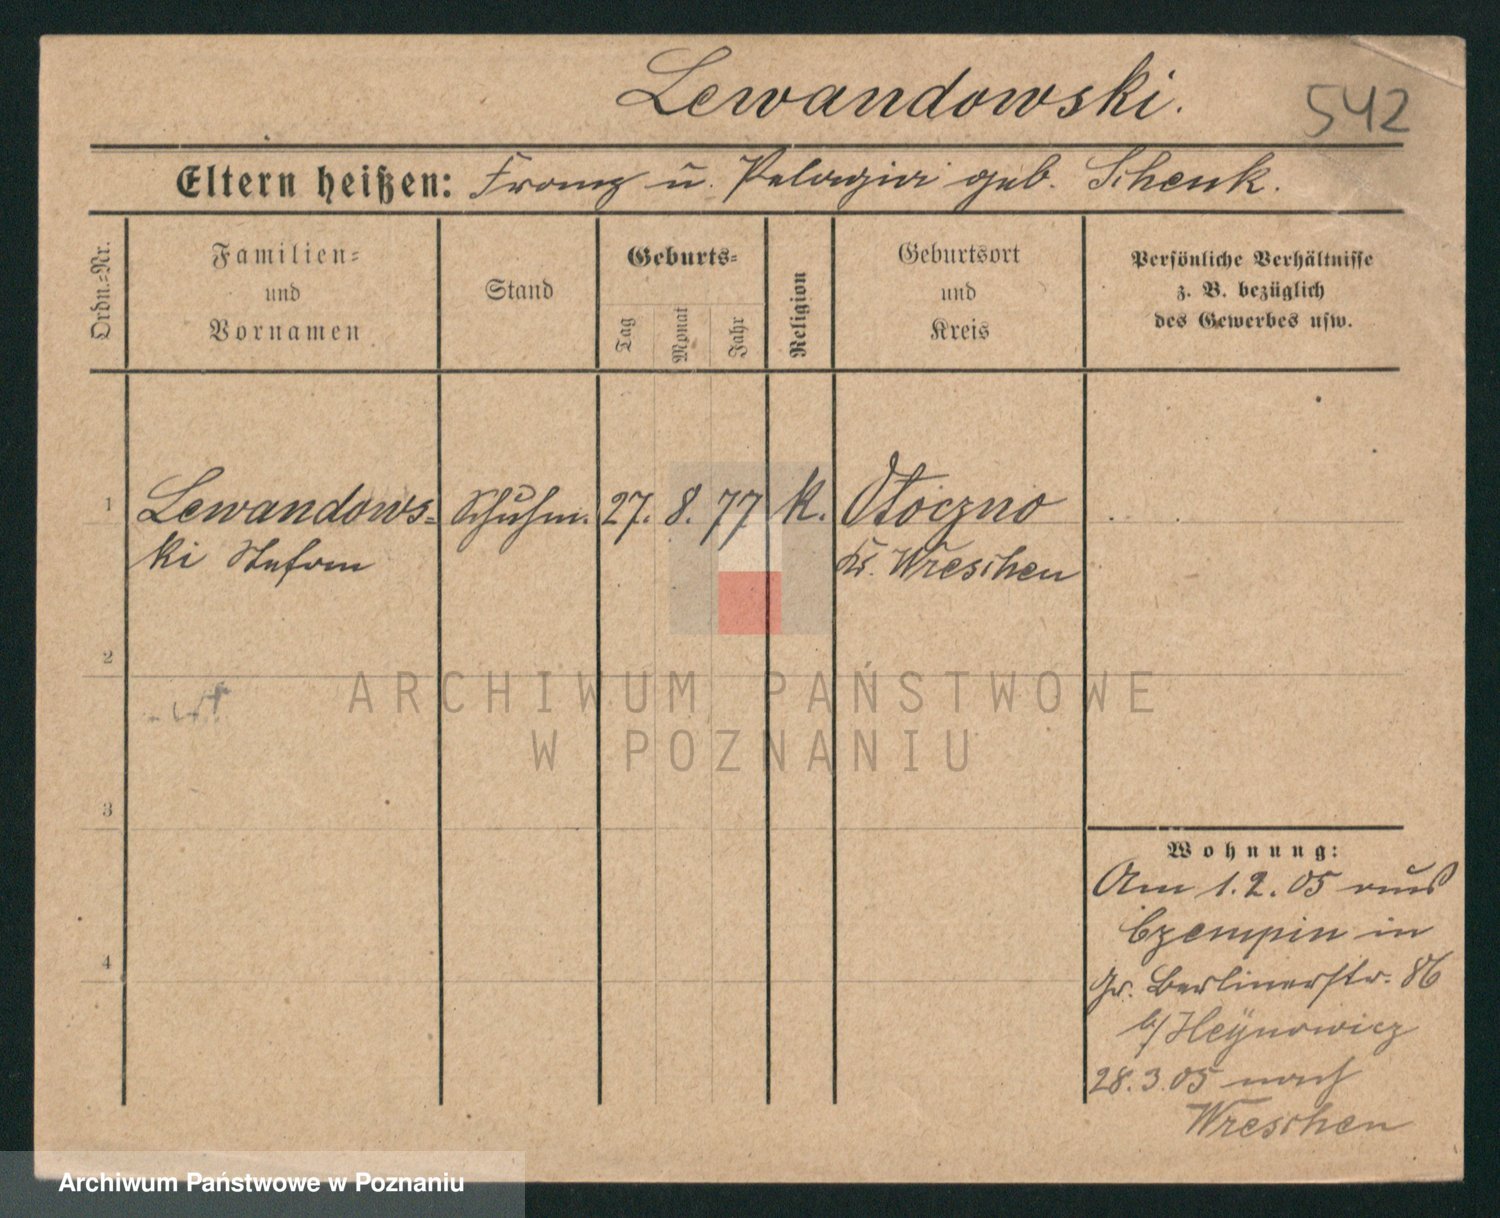 Lewandowski.
542
Eltern heißen: Franz u. Pelagia geb. Schenk.
Ordn.-Nr.
Familien-
und
Vornamen
Stand
Geburts-
Tag
Monat
Jahr
Religion
Geburtsort
und
Kreis
Persönliche Verhältnisse
z. B. bezüglich
des Gewerbes usw.
1 Lewandows- Schuhm. 27. 8. 77 k. Otoczno
ki Stefan Kr. Wreschen
2
ARCHIWUM PAŃSTWOWE
W POZNANIU
3
Wohnung:
Am 1.2.05 aus
Czempin in
4
Gr. Berlinerstr. 86
b/Heÿnowicz
28.3.05 nach
Wreschen
Archiwum Państwowe w Poznaniu